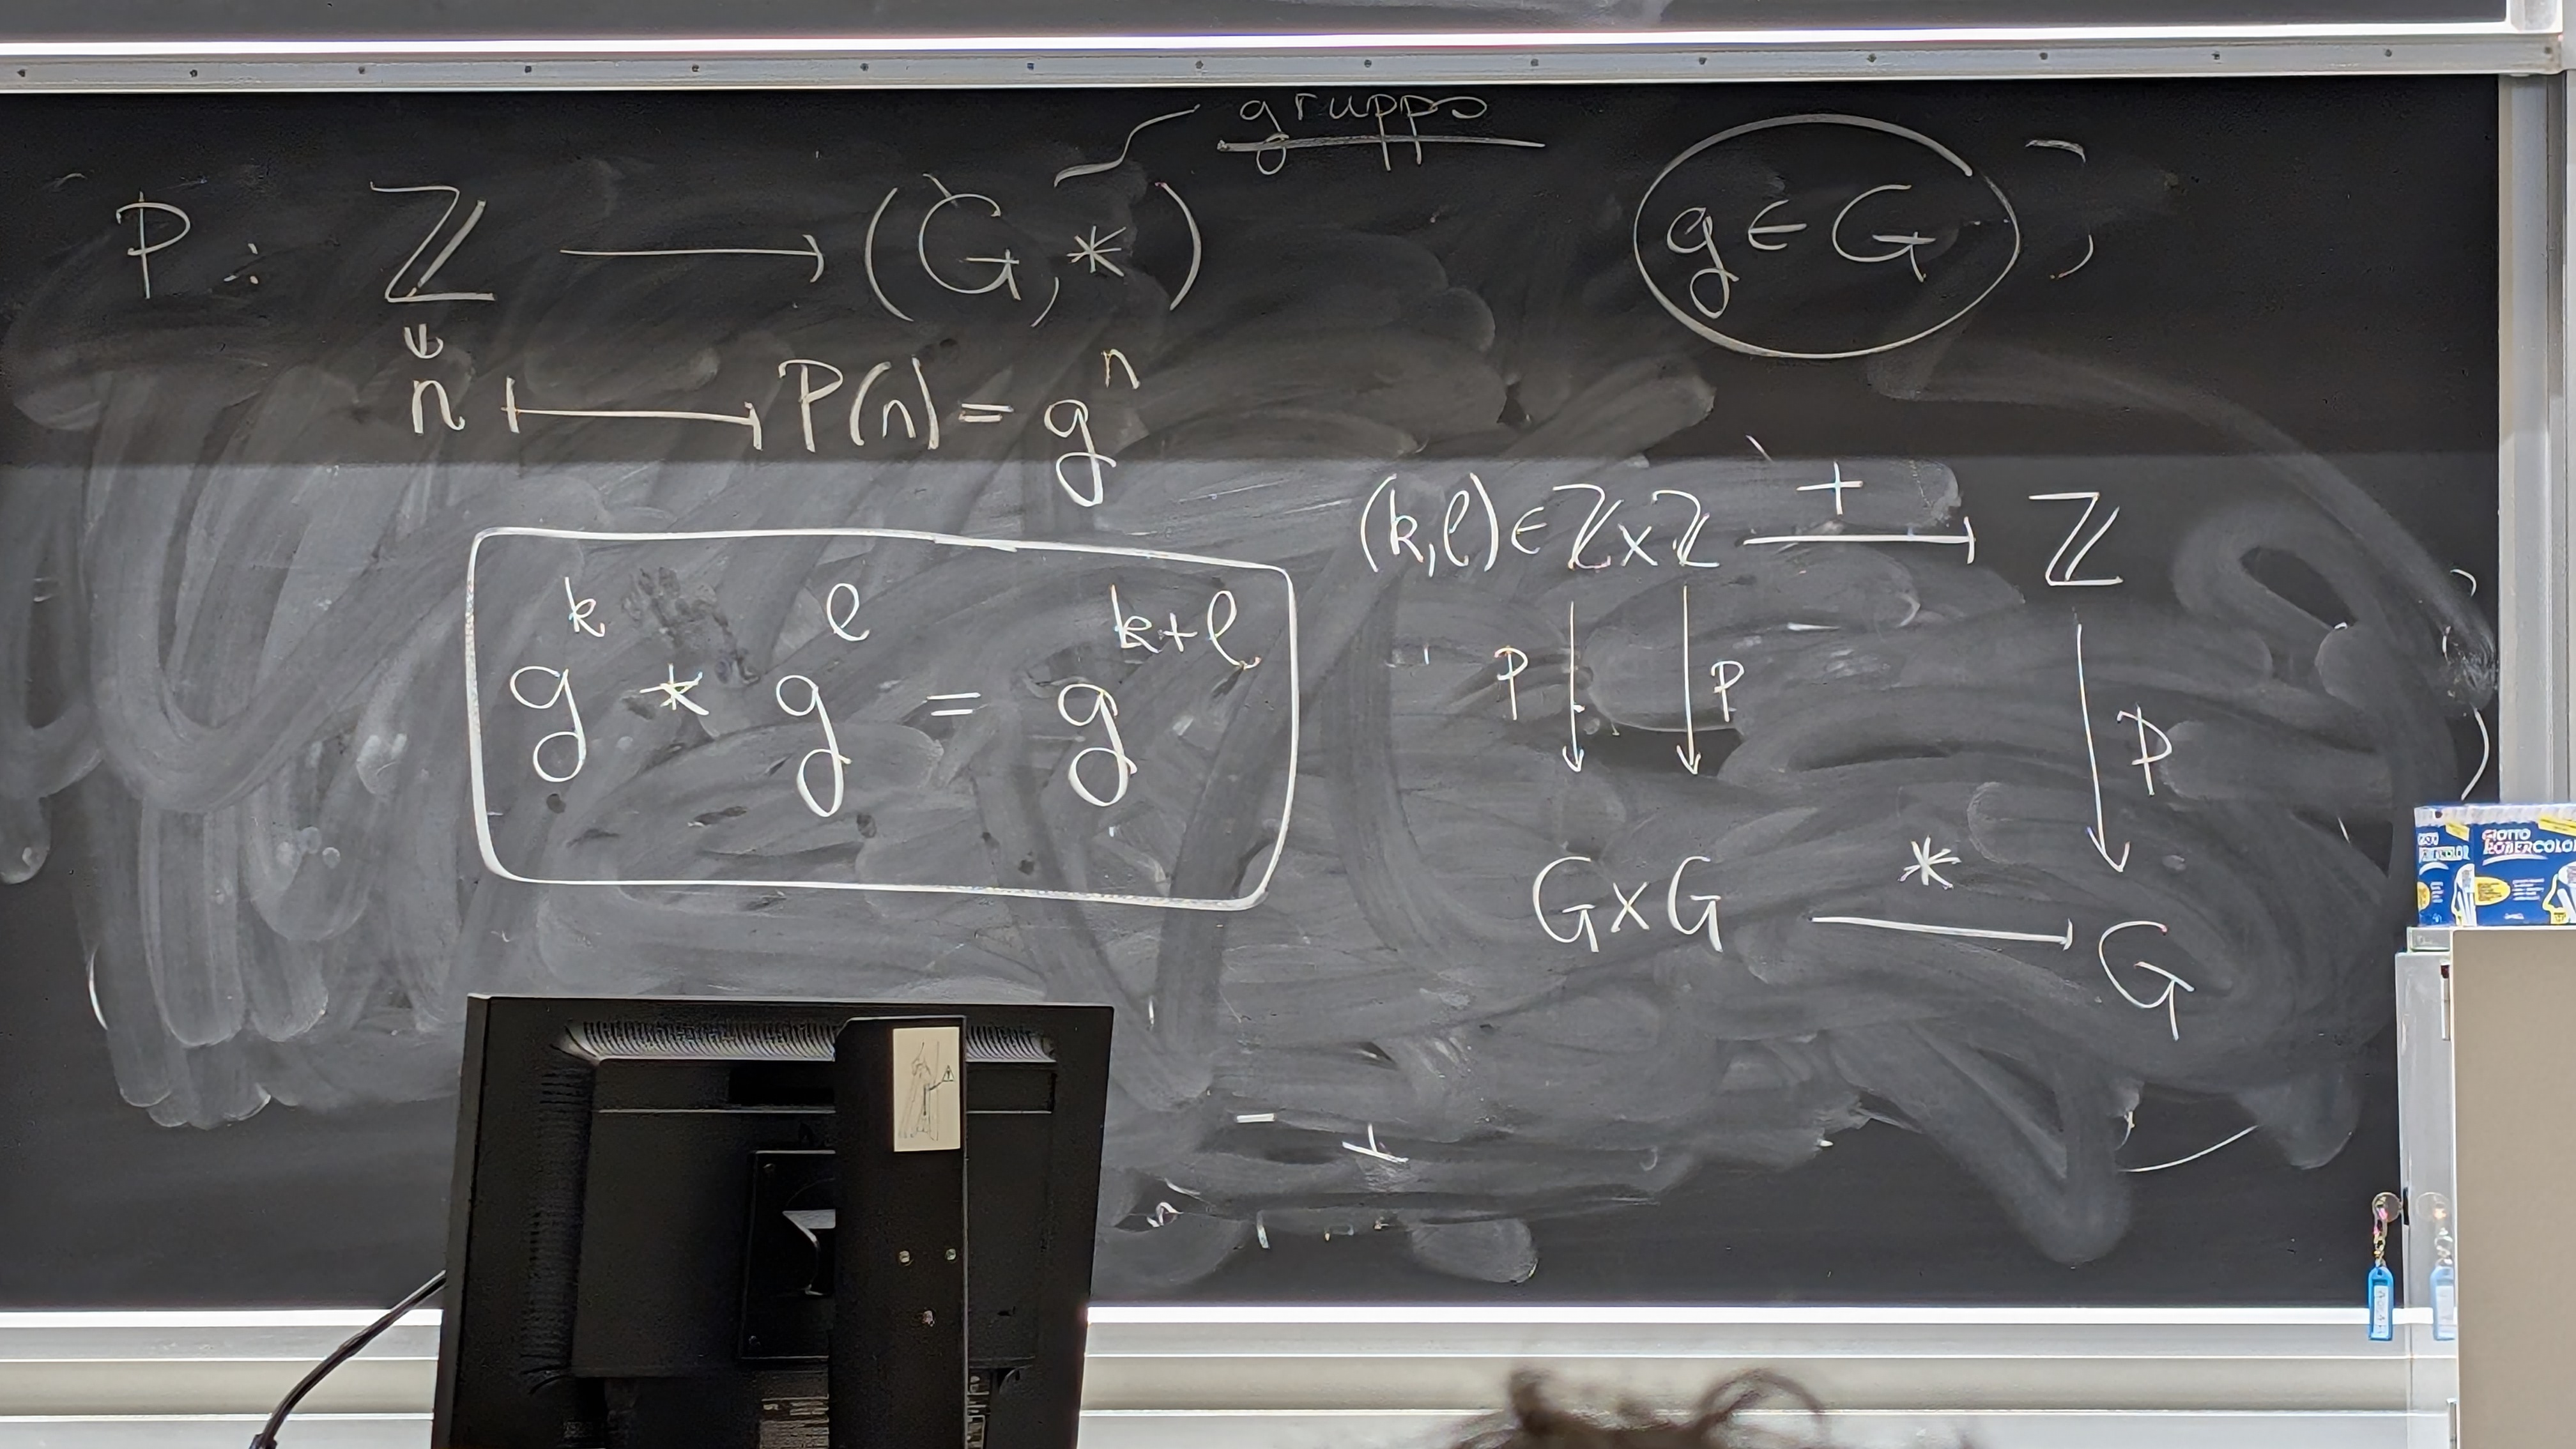 gruppo
P : ℤ ⟶ (G, *) g ∈ G ;
n ⟼ P(n) = gⁿ
(k,ℓ) ∈ ℤ×ℤ + ⟶ ℤ
g^k * g^ℓ = g^{k+ℓ}
P ↓ ↓ P ↓ P
G×G * ⟶ G
GIOTTO
ROBERCOLOR